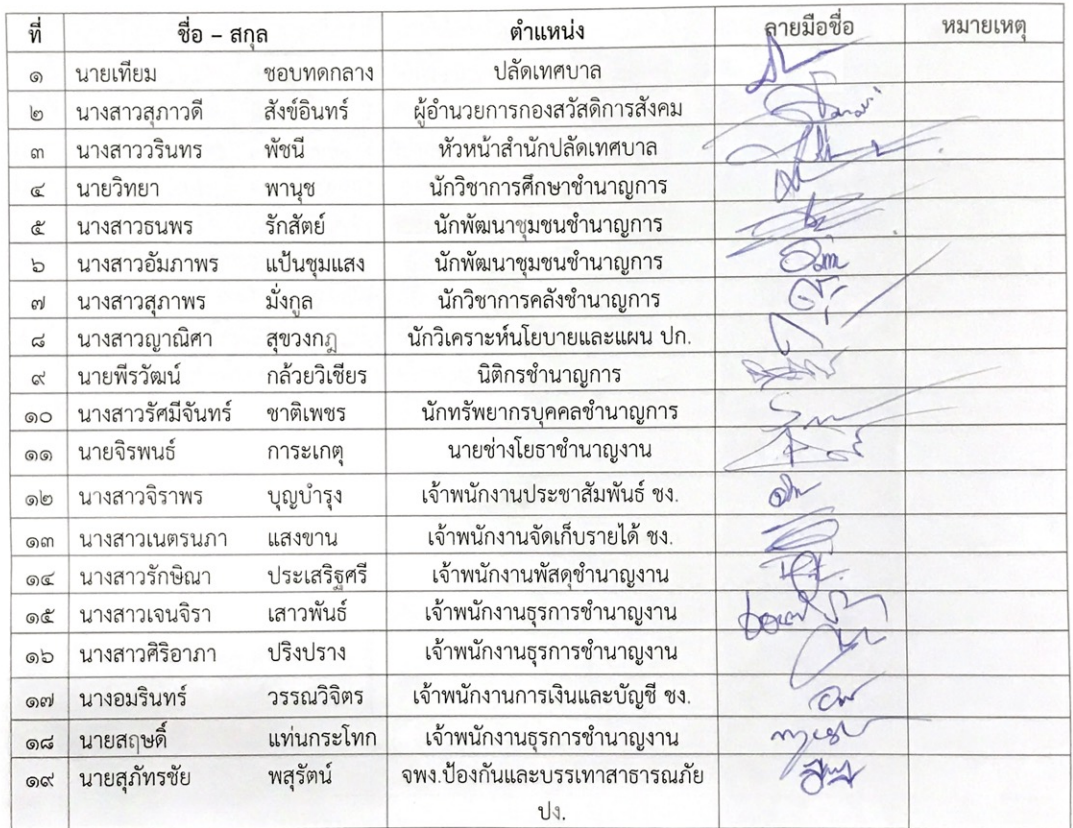 ที่ ชื่อ – สกุล ตำแหน่ง ลายมือชื่อ หมายเหตุ
๑ นายเทียม ชอบทดกลาง ปลัดเทศบาล
๒ นางสาวสุภาวดี สังข์อินทร์ ผู้อำนวยการกองสวัสดิการสังคม
๓ นางสาววรินทร พัชนี หัวหน้าสำนักปลัดเทศบาล
๔ นายวิทยา พานุช นักวิชาการศึกษาชำนาญการ
๕ นางสาวธนพร รักสัตย์ นักพัฒนาชุมชนชำนาญการ
๖ นางสาวอัมภาพร แป้นชุมแสง นักพัฒนาชุมชนชำนาญการ
๗ นางสาวสุภาพร มั่งกูล นักวิชาการคลังชำนาญการ
๘ นางสาวญาณิศา สุขวงกฎ นักวิเคราะห์นโยบายและแผน ปก.
๙ นายพีรวัฒน์ กล้วยวิเชียร นิติกรชำนาญการ
๑๐ นางสาวรัศมีจันทร์ ชาติเพชร นักทรัพยากรบุคคลชำนาญการ
๑๑ นายจิรพนธ์ การะเกตุ นายช่างโยธาชำนาญงาน
๑๒ นางสาวจิราพร บุญบำรุง เจ้าพนักงานประชาสัมพันธ์ ชง.
๑๓ นางสาวเนตรนภา แสงขาน เจ้าพนักงานจัดเก็บรายได้ ชง.
๑๔ นางสาวรักษิณา ประเสริฐศรี เจ้าพนักงานพัสดุชำนาญงาน
๑๕ นางสาวเจนจิรา เสาวพันธ์ เจ้าพนักงานธุรการชำนาญงาน
๑๖ นางสาวศิริอาภา ปริงปราง เจ้าพนักงานธุรการชำนาญงาน
๑๗ นางอมรินทร์ วรรณวิจิตร เจ้าพนักงานการเงินและบัญชี ชง.
๑๘ นายสฤษดิ์ แท่นกระโทก เจ้าพนักงานธุรการชำนาญงาน
๑๙ นายสุภัทรชัย พสุรัตน์ จพง.ป้องกันและบรรเทาสาธารณภัย
ปง.